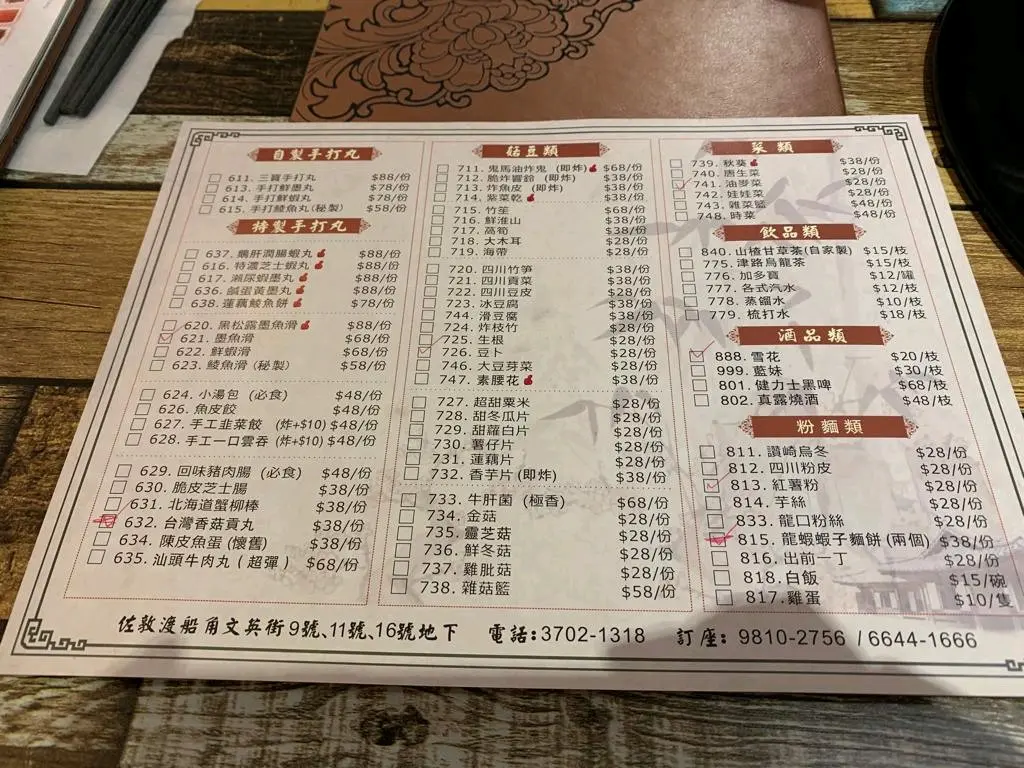 自製手打丸
611. 三寶手打丸 $88/份
613. 手打鮮墨丸 $78/份
614. 手打鮮蝦丸 $78/份
615. 手打鯪魚丸(秘製) $58/份
特製手打丸
637. 鵝肝潤腸蝦丸 $88/份
616. 特濃芝士蝦丸 $88/份
617. 瀨尿蝦墨丸 $88/份
636. 鹹蛋黃墨丸 $88/份
638. 蓮藕鯪魚餅 $78/份
620. 黑松露墨魚滑 $88/份
621. 墨魚滑 $68/份
622. 鮮蝦滑 $68/份
623. 鯪魚滑 (秘製) $58/份
624. 小湯包 (必食) $48/份
626. 魚皮餃 $48/份
627. 手工韭菜餃 (炸+$10) $48/份
628. 手工一口雲吞 (炸+$10) $48/份
629. 回味豬肉腸 (必食) $48/份
630. 脆皮芝士腸 $38/份
631. 北海道蟹柳棒 $38/份
632. 台灣香菇貢丸 $38/份
634. 陳皮魚蛋 (懷舊) $38/份
635. 汕頭牛肉丸 ( 超彈 ) $68/份
菇豆類
711. 鬼馬油炸鬼 (即炸) $68/份
712. 脆炸響鈴 (即炸) $38/份
713. 炸魚皮 (即炸) $38/份
714. 紫菜乾 $38/份
715. 竹笙 $68/份
716. 鮮淮山 $38/份
717. 萵筍 $38/份
718. 大木耳 $28/份
719. 海帶 $28/份
720. 四川竹笋 $38/份
721. 四川貢菜 $38/份
722. 四川豆皮 $28/份
723. 冰豆腐 $38/份
744. 滑豆腐 $38/份
724. 炸枝竹 $28/份
725. 生根 $28/份
726. 豆卜 $28/份
746. 大豆芽菜 $28/份
747. 素腰花 $38/份
727. 超甜粟米 $28/份
728. 甜冬瓜片 $28/份
729. 甜蘿白片 $28/份
730. 薯仔片 $28/份
731. 蓮藕片 $28/份
732. 香芋片 (即炸) $38/份
733. 牛肝菌 (極香) $68/份
734. 金菇 $28/份
735. 靈芝菇 $28/份
736. 鮮冬菇 $28/份
737. 雞肶菇 $28/份
738. 雜菇籃 $58/份
菜類
739. 秋葵 $38/份
740. 唐生菜 $28/份
741. 油麥菜 $28/份
742. 娃娃菜 $28/份
743. 雜菜籃 $48/份
748. 時菜 $48/份
飲品類
840. 山楂甘草茶(自家製) $15/枝
775. 津路烏龍茶 $15/枝
776. 加多寶 $12/罐
777. 各式汽水 $12/枝
778. 蒸餾水 $10/枝
779. 梳打水 $18/枝
酒品類
888. 雪花 $20/枝
999. 藍妹 $30/枝
801. 健力士黑啤 $68/枝
802. 真露燒酒 $48/枝
粉麵類
811. 讚崎烏冬 $28/份
812. 四川粉皮 $28/份
813. 紅薯粉 $28/份
814. 芋絲 $28/份
833. 龍口粉絲 $28/份
815. 龍蝦蝦子麵餅 (兩個) $38/份
816. 出前一丁 $28/份
818. 白飯 $15/碗
817. 雞蛋 $10/隻
佐敦渡船角文英街9號、11號、16號地下 電話:3702-1318 訂座: 9810-2756 /6644-1666